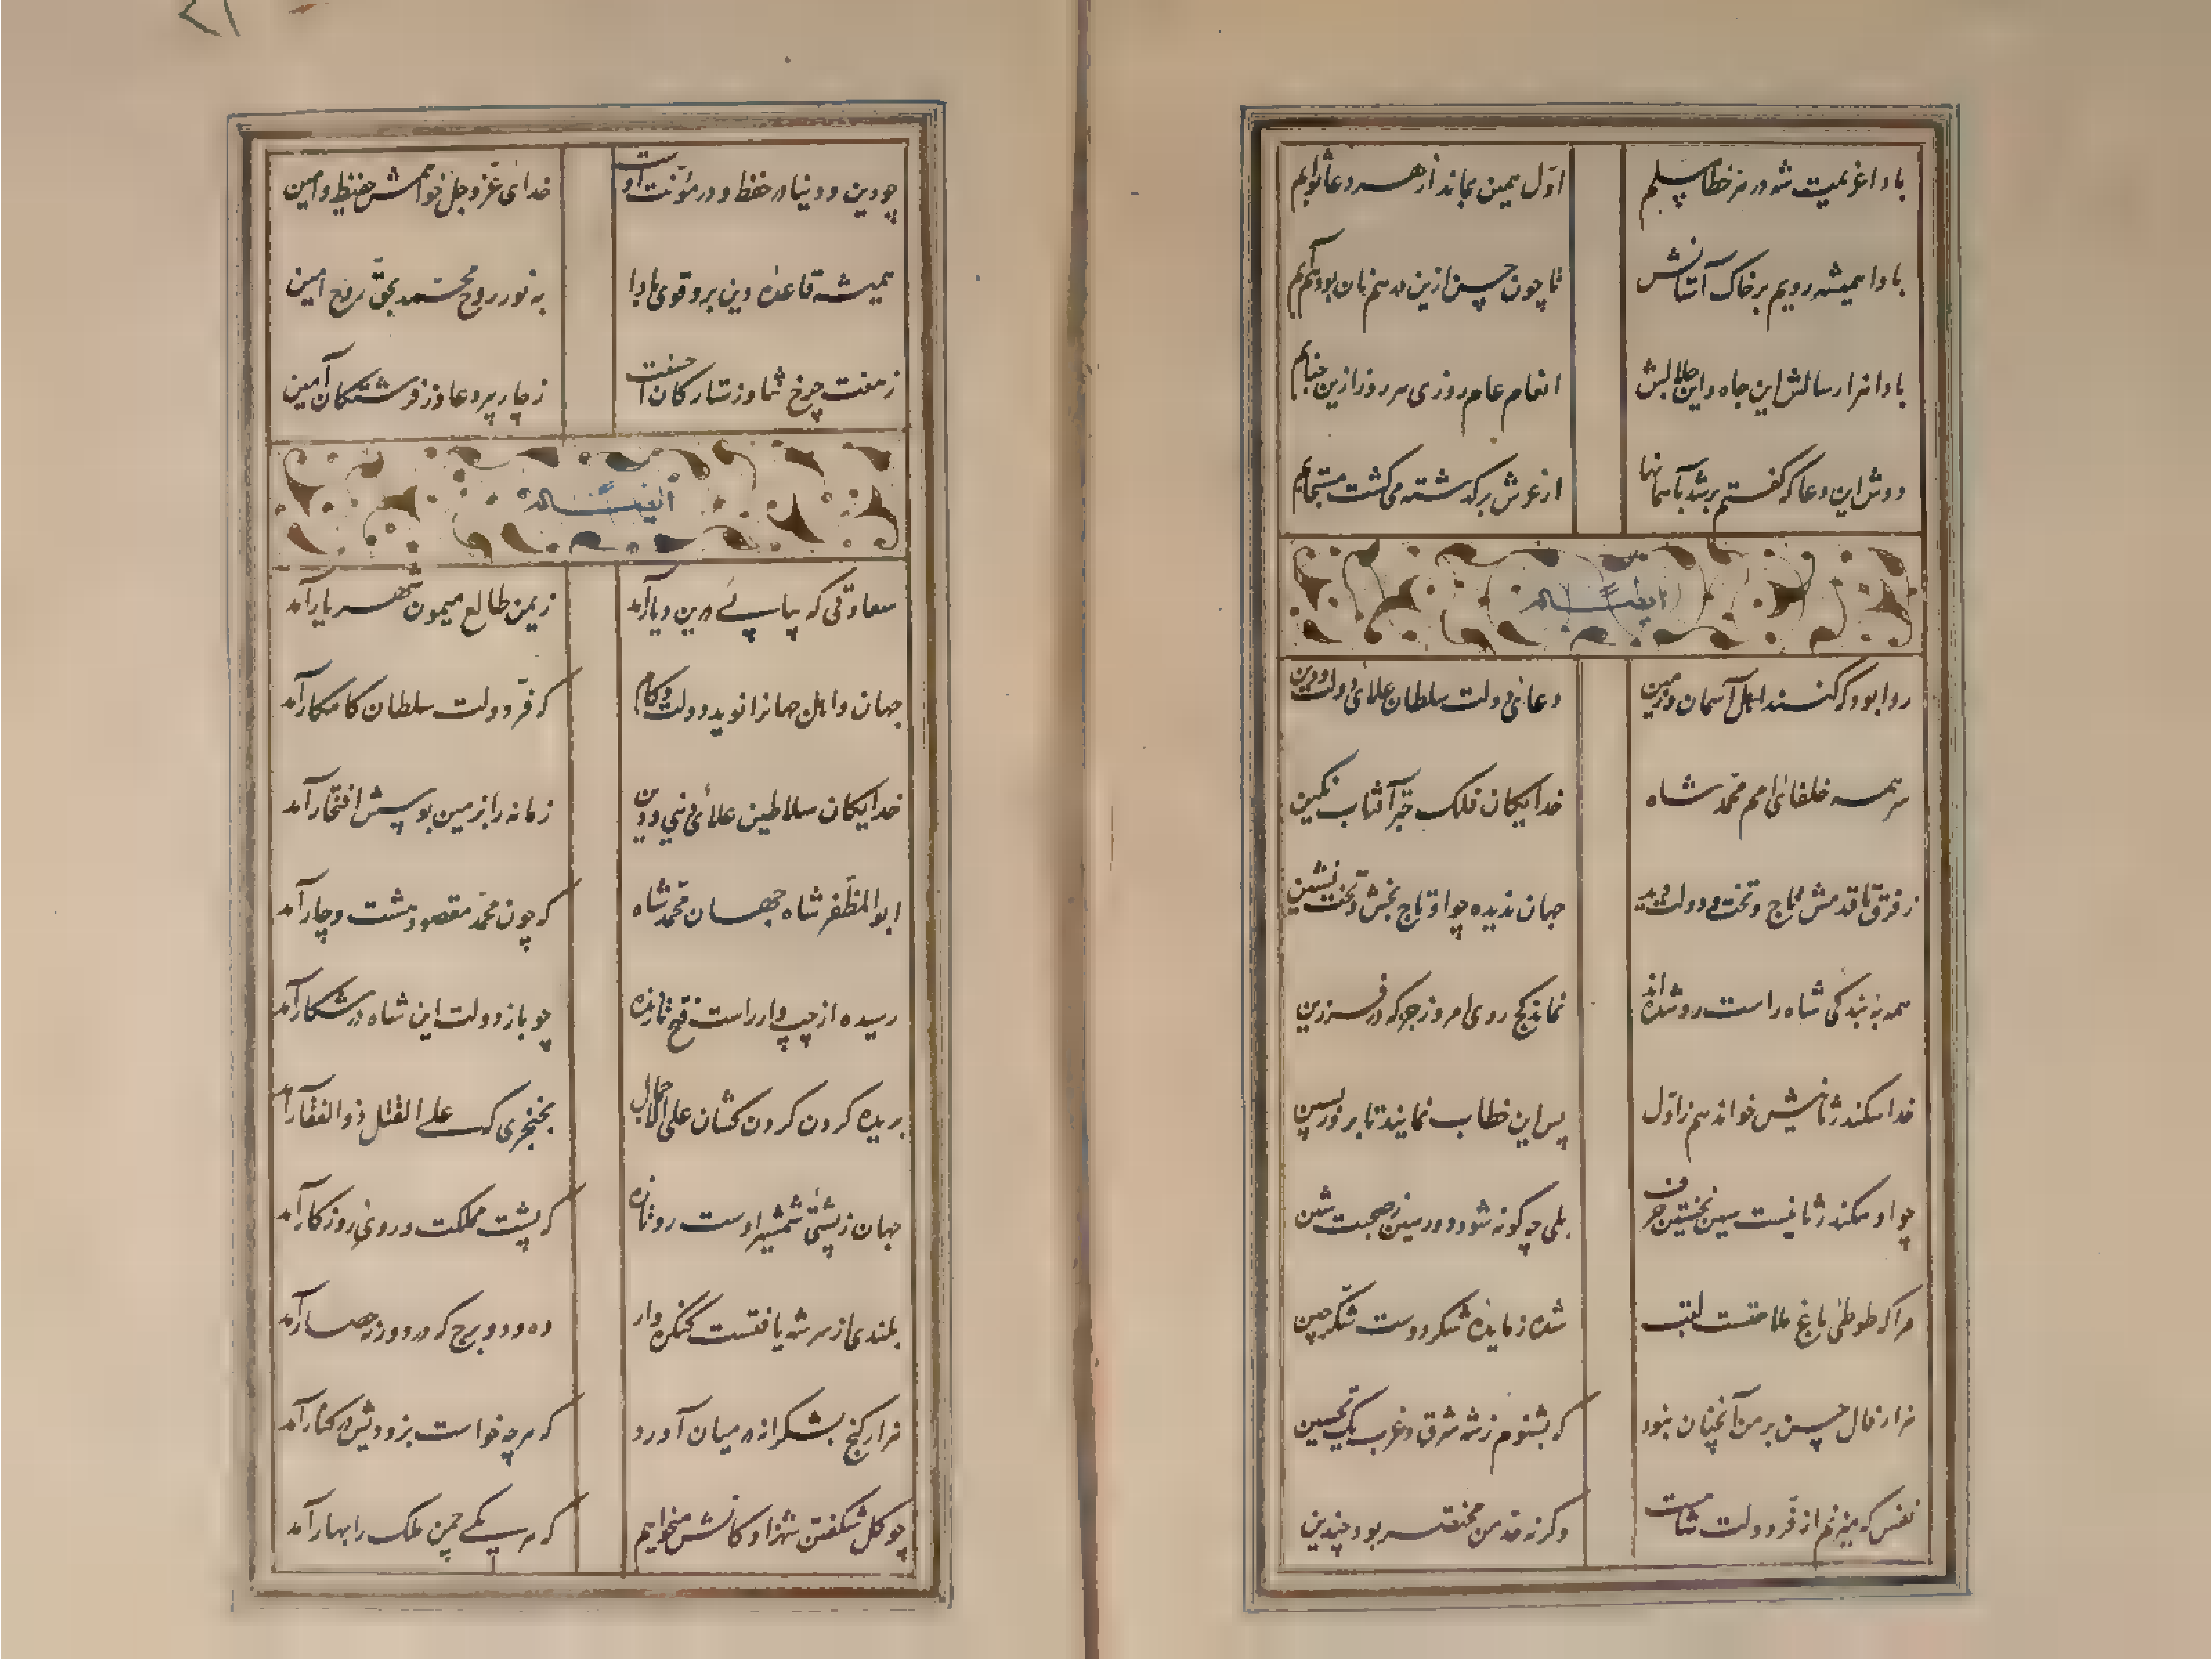 بادا عزیمت شه در هر خطا پسلم اوّل همین بماند از هر دعا توابم
بادا همیشه رویم بر خاک آستانش تا چون حسن ازین در هم نان بود هم آبم
بادا هزار سالش این جاه و این جلالش انعام عام روزی هر روز ازین جنابم
دوش این دعا که گفتم بر شد بآسمانها از عرش برگذشته می گشت مستجابم
ایضاً له
روا بود که کنند اهل آسمان و زمین دعائی دولت سلطان علائی دولت و دین
سر همه خلفائی امم محمد شاه خدایگان فلک چتر آفتاب نگین
ز فرق تا قدمش تاج و تخت و دولت جهان ندیده چو او تاج بخش و تخت نشین
همه به بندگی شاه راست رو شده اند نماند کج روی امروز جز که در فرزین
خدا سکندر ثانیش خواند هم ز اوّل پس این خطاب نمایند تا بروز پسین
چو او سکندر ثانیست سین نخستین حرف بلی چگونه شود دور سین ز صحبت شین
مرا که طوطی باغ ملاحتست لقب شده ز مایده شکر دوست شکّر چین
هزار فال حسن بر من آنچنان نبود که بشنوم ز شه شرق و غرب یک تحسین
نفس که میزنم از فرّ دولت شاست وگرنه قد من مختصر بود چندین
چو دین و دنیا در حفظ و در مؤنت اوست خدای عزّ و جل خواهمش حفیظ و امین
همیشه قاعده دین برو قوی بادا به نور روح محمّد بحقّ روح امین
ز هفت چرخ ثنا وز ستارگان احسنت ز چار پیر دعا وز فرشتگان آمین
ایضاً له
سعادتی که پیاپی درین دیار آمد ز یمن طالع میمون شهریار آمد
جهان و اهل جهانرا نوید دولت و کام که فرّ دولت سلطان کامکار آمد
خدایگان سلاطین علائی دنیی و دین زمانه را ز زمین بوسیش افتخار آمد
ابوالمظفّر شاه جهان محمّد شاه که چون محمّد مقصود هشت و چار آمد
رسیده از چپ و از راست فتح تازنده چو باز دولت این شاه در شکار آمد
بریده گردن گردن کشان علی الاجمال بخنجری که علی القتل ذوالفقار آمد
جهان ز پشتی شمشیر اوست رو تازه که پشت مملکت و روی روزگار آمد
بلندی از سر شه یافتست کنگره وار ده و دو برج که در دور نه حصار آمد
هزار گنج بشکرانه در میان آورد که هر چه خواست بزودیش در کنار آمد
چو گل شگفتن شهزادگانش میخواهیم که هر یکی چمن ملک را بهار آمد